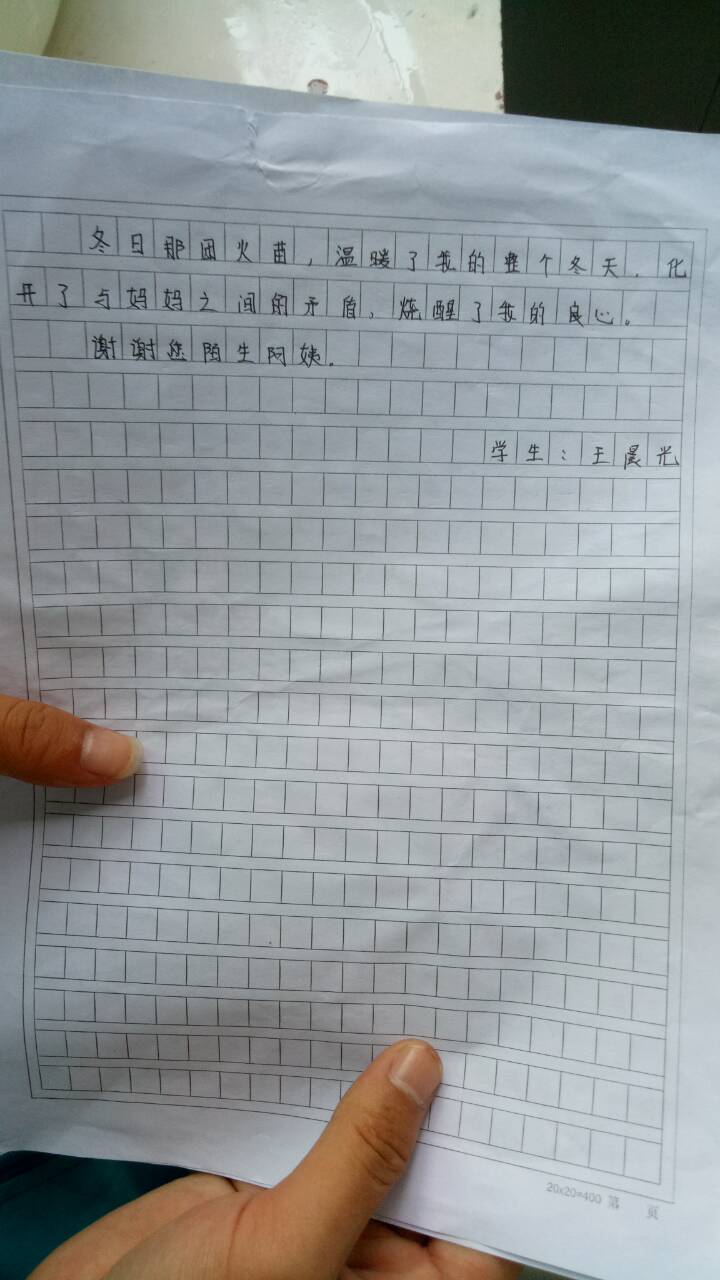 冬日那团火苗，温暖了我的整个冬天．化
开了与妈妈之间的矛盾，烧醒了我的良心。
谢谢您陌生阿姨．
学生：王晨光
20x20=400 第 页